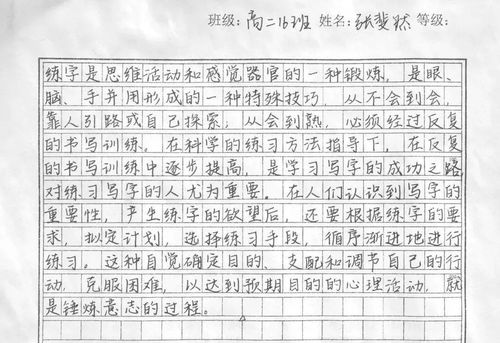 班级:高二16班 姓名:张斐然 等级:
练字是思维活动和感觉器官的一种锻炼，是眼、
脑、手并用形成的一种特殊技巧，从不会到会，
靠人引路或自己探索；从会到熟，必须经过反复
的书写训练。在科学的练习方法指导下，在反复
的书写训练中逐步提高，是学习写字的成功之路，
对练习写字的人尤为重要。在人们认识到写字的
重要性，产生练字的欲望后，还要根据练字的要
求，拟定计划，选择练习手段，循序渐进地进行
练习。这种自觉确定目的、支配和调节自己的行
动，克服困难，以达到预期目的的心理活动，就
是锤炼意志的过程。